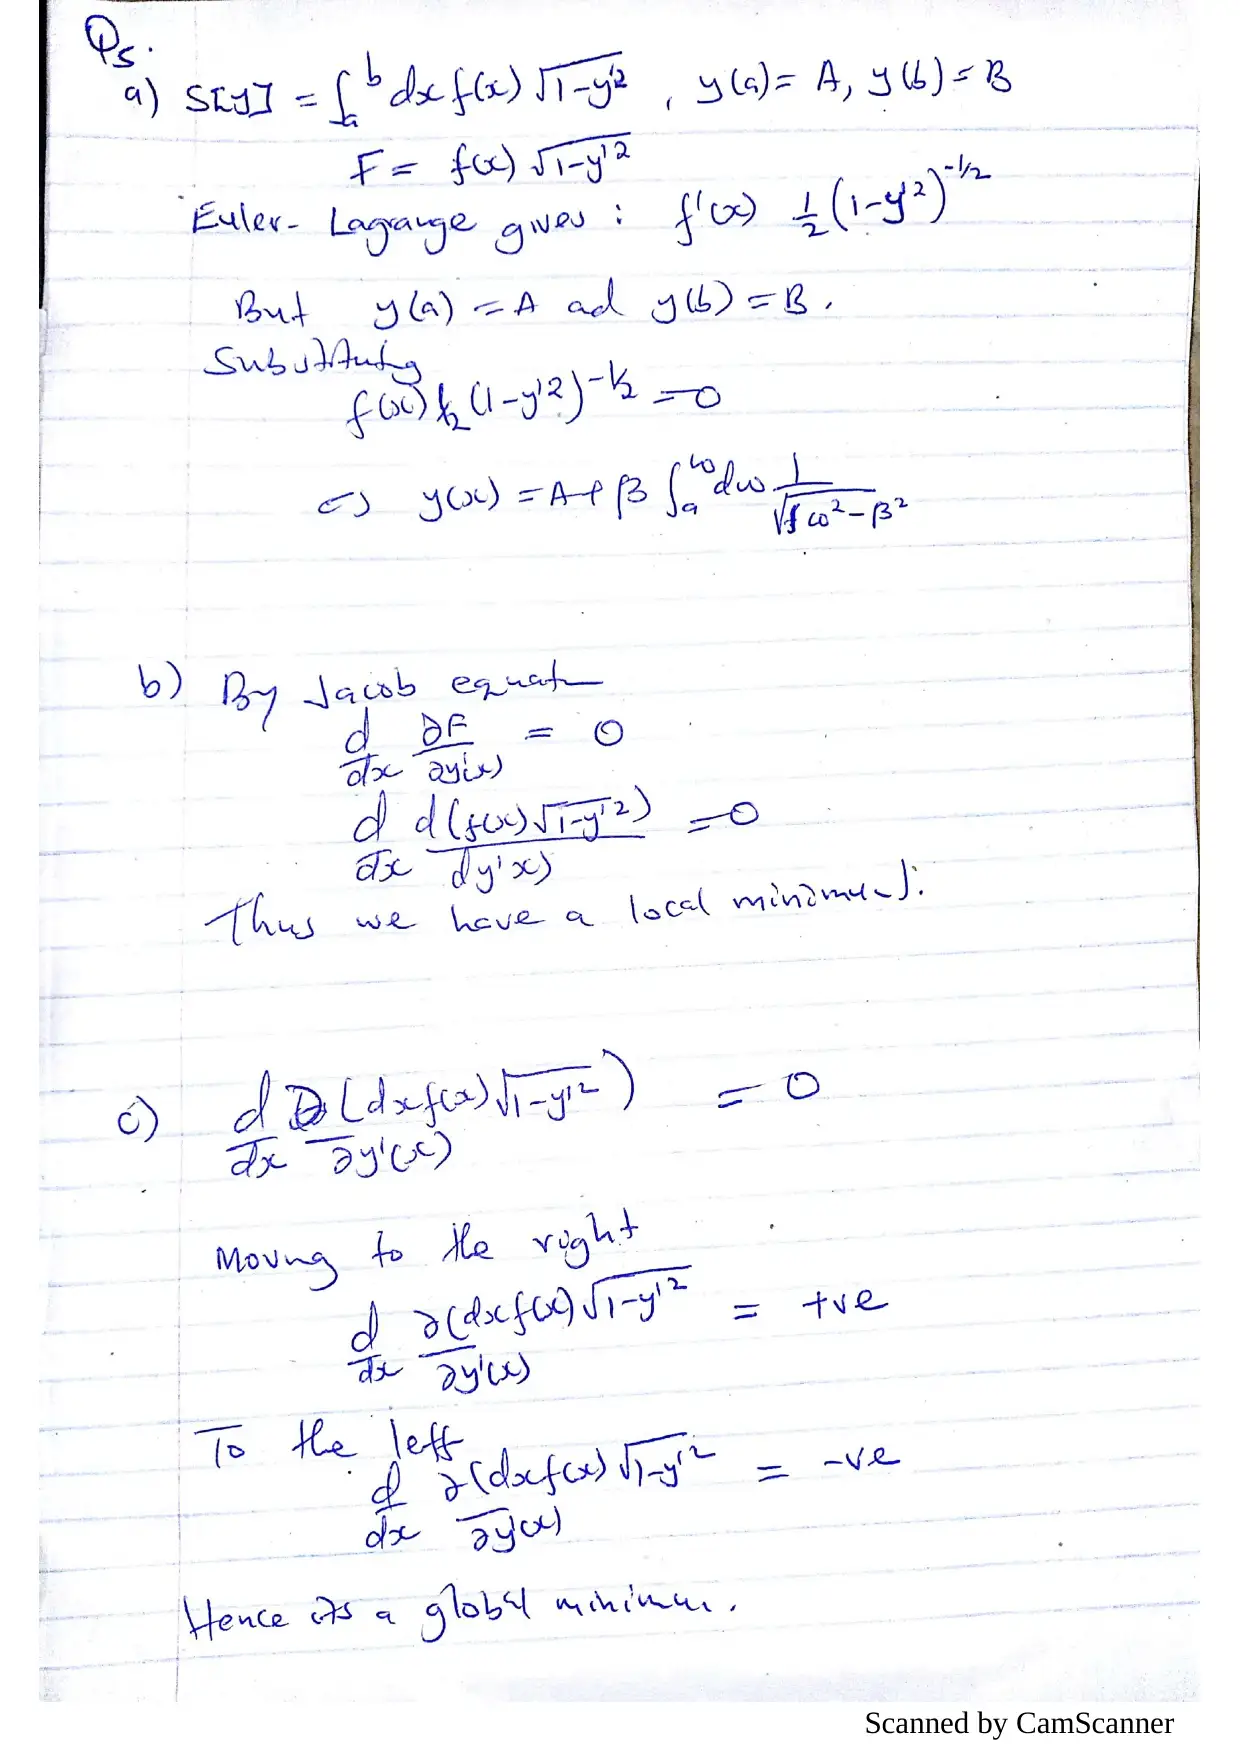 Q5.
a) S[y] = ∫_a^b dx f(x) √(1-y'2) , y(a)= A, y(b)=B
F= f(x) √(1-y'2)
Euler- Lagrange gives : f'(x) 1/2 (1-y'2)^-1/2
But y(a) =A ad y(b) =B.
Substitutig
f(x) 1/2 (1-y'2)^-1/2 =0
y(x) =A+ β ∫_a^ω dω 1/√(f ω2-β2)
b) By Jacob equat
d/dx ∂F/∂y'(x) = 0
d/dx d(f(x) √(1-y'2))/dy'x) =0
Thus we have a local
c) d/dx ∂(dxf(x) √(1-y'2))/∂y'(x) = 0
Moving to the right
d/dx ∂(dxf(x) √(1-y'2)/∂y'(x) = +ve
To the left
d/dx ∂(dxf(x) √(1-y'2)/∂y'(x) = -ve
Hence its a global
Scanned by CamScanner